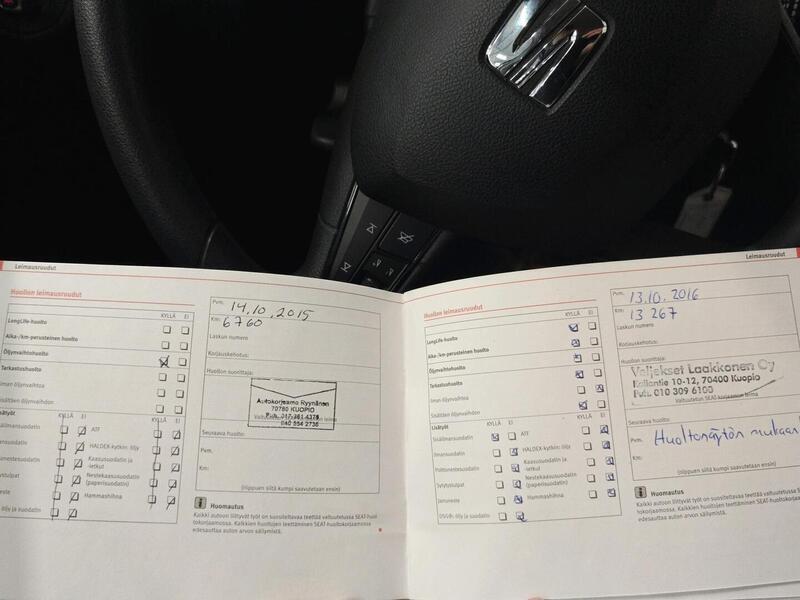 Leimausruudut
Huollon leimausruudut
KYLLÄ EI
LongLife-huolto
Aika-/km-perusteinen huolto
Öljynvaihtohuolto
Tarkastushuolto
ilman öljynvaihtoa
sisältäen öljynvaihdon
Lisätyöt
KYLLÄ EI
KYLLÄ EI
sisäilmansuodatin
ATF
ilmansuodatin
HALDEX-kytkin: öljy
Polttonestesuodatin
Kaasusuodatin ja -letkut
Sytytystulpat
Nestekaasusuodatin (paperisuodatin)
Jarruneste
Hammashihna
öljy ja suodatin
Pvm. 14.10.2015
Km: 6760
Laskun numero
Korjauskehotus:
Huollon suorittaja:
Autokorjaamo Ryynänen
70780 KUOPIO
Puh. 017-361 4376
040 554 2736
Seuraava huolto:
Pvm.
Km:
(riippuen siitä kumpi saavutetaan ensin)
Huomautus
Kaikki autoon liittyvät työt on suositeltavaa teettää valtuutetussa SEAT-huol-
tokorjaamossa. Kaikkien huoltojen teettäminen SEAT-huoltokorjaamossa
edesauttaa auton arvon säilymistä.
Leimausruudut
Huollon leimausruudut
KYLLÄ EI
LongLife-huolto
Aika-/km-perusteinen huolto
Öljynvaihtohuolto
Tarkastushuolto
ilman öljynvaihtoa
sisältäen öljynvaihdon
Lisätyöt
KYLLÄ EI
KYLLÄ EI
Sisäilmansuodatin
ATF
Ilmansuodatin
HALDEX-kytkin: öljy
Polttonestesuodatin
Kaasusuodatin ja -letkut
Sytytystulpat
Nestekaasusuodatin (paperisuodatin)
Jarruneste
Hammashihna
DSG®: öljy ja suodatin
Pvm. 13.10.2016
Km: 13 267
Laskun numero
Korjauskehotus:
Huollon suorittaja:
Veljekset Laakkonen Oy
Kallantie 10-12, 70400 Kuopio
Puh. 010 309 6100
Valtuutetun SEAT-korjaamon leima
Seuraava huolto:
Pvm. Huoltonäytön mukaan
Km:
(riippuen siitä kumpi saavutetaan ensin)
Huomautus
Kaikki autoon liittyvät työt on suositeltavaa teettää valtuutetussa
tokorjaamossa. Kaikkien huoltojen teettäminen SEAT-huoltokorjaamossa
edesauttaa auton arvon säilymistä.